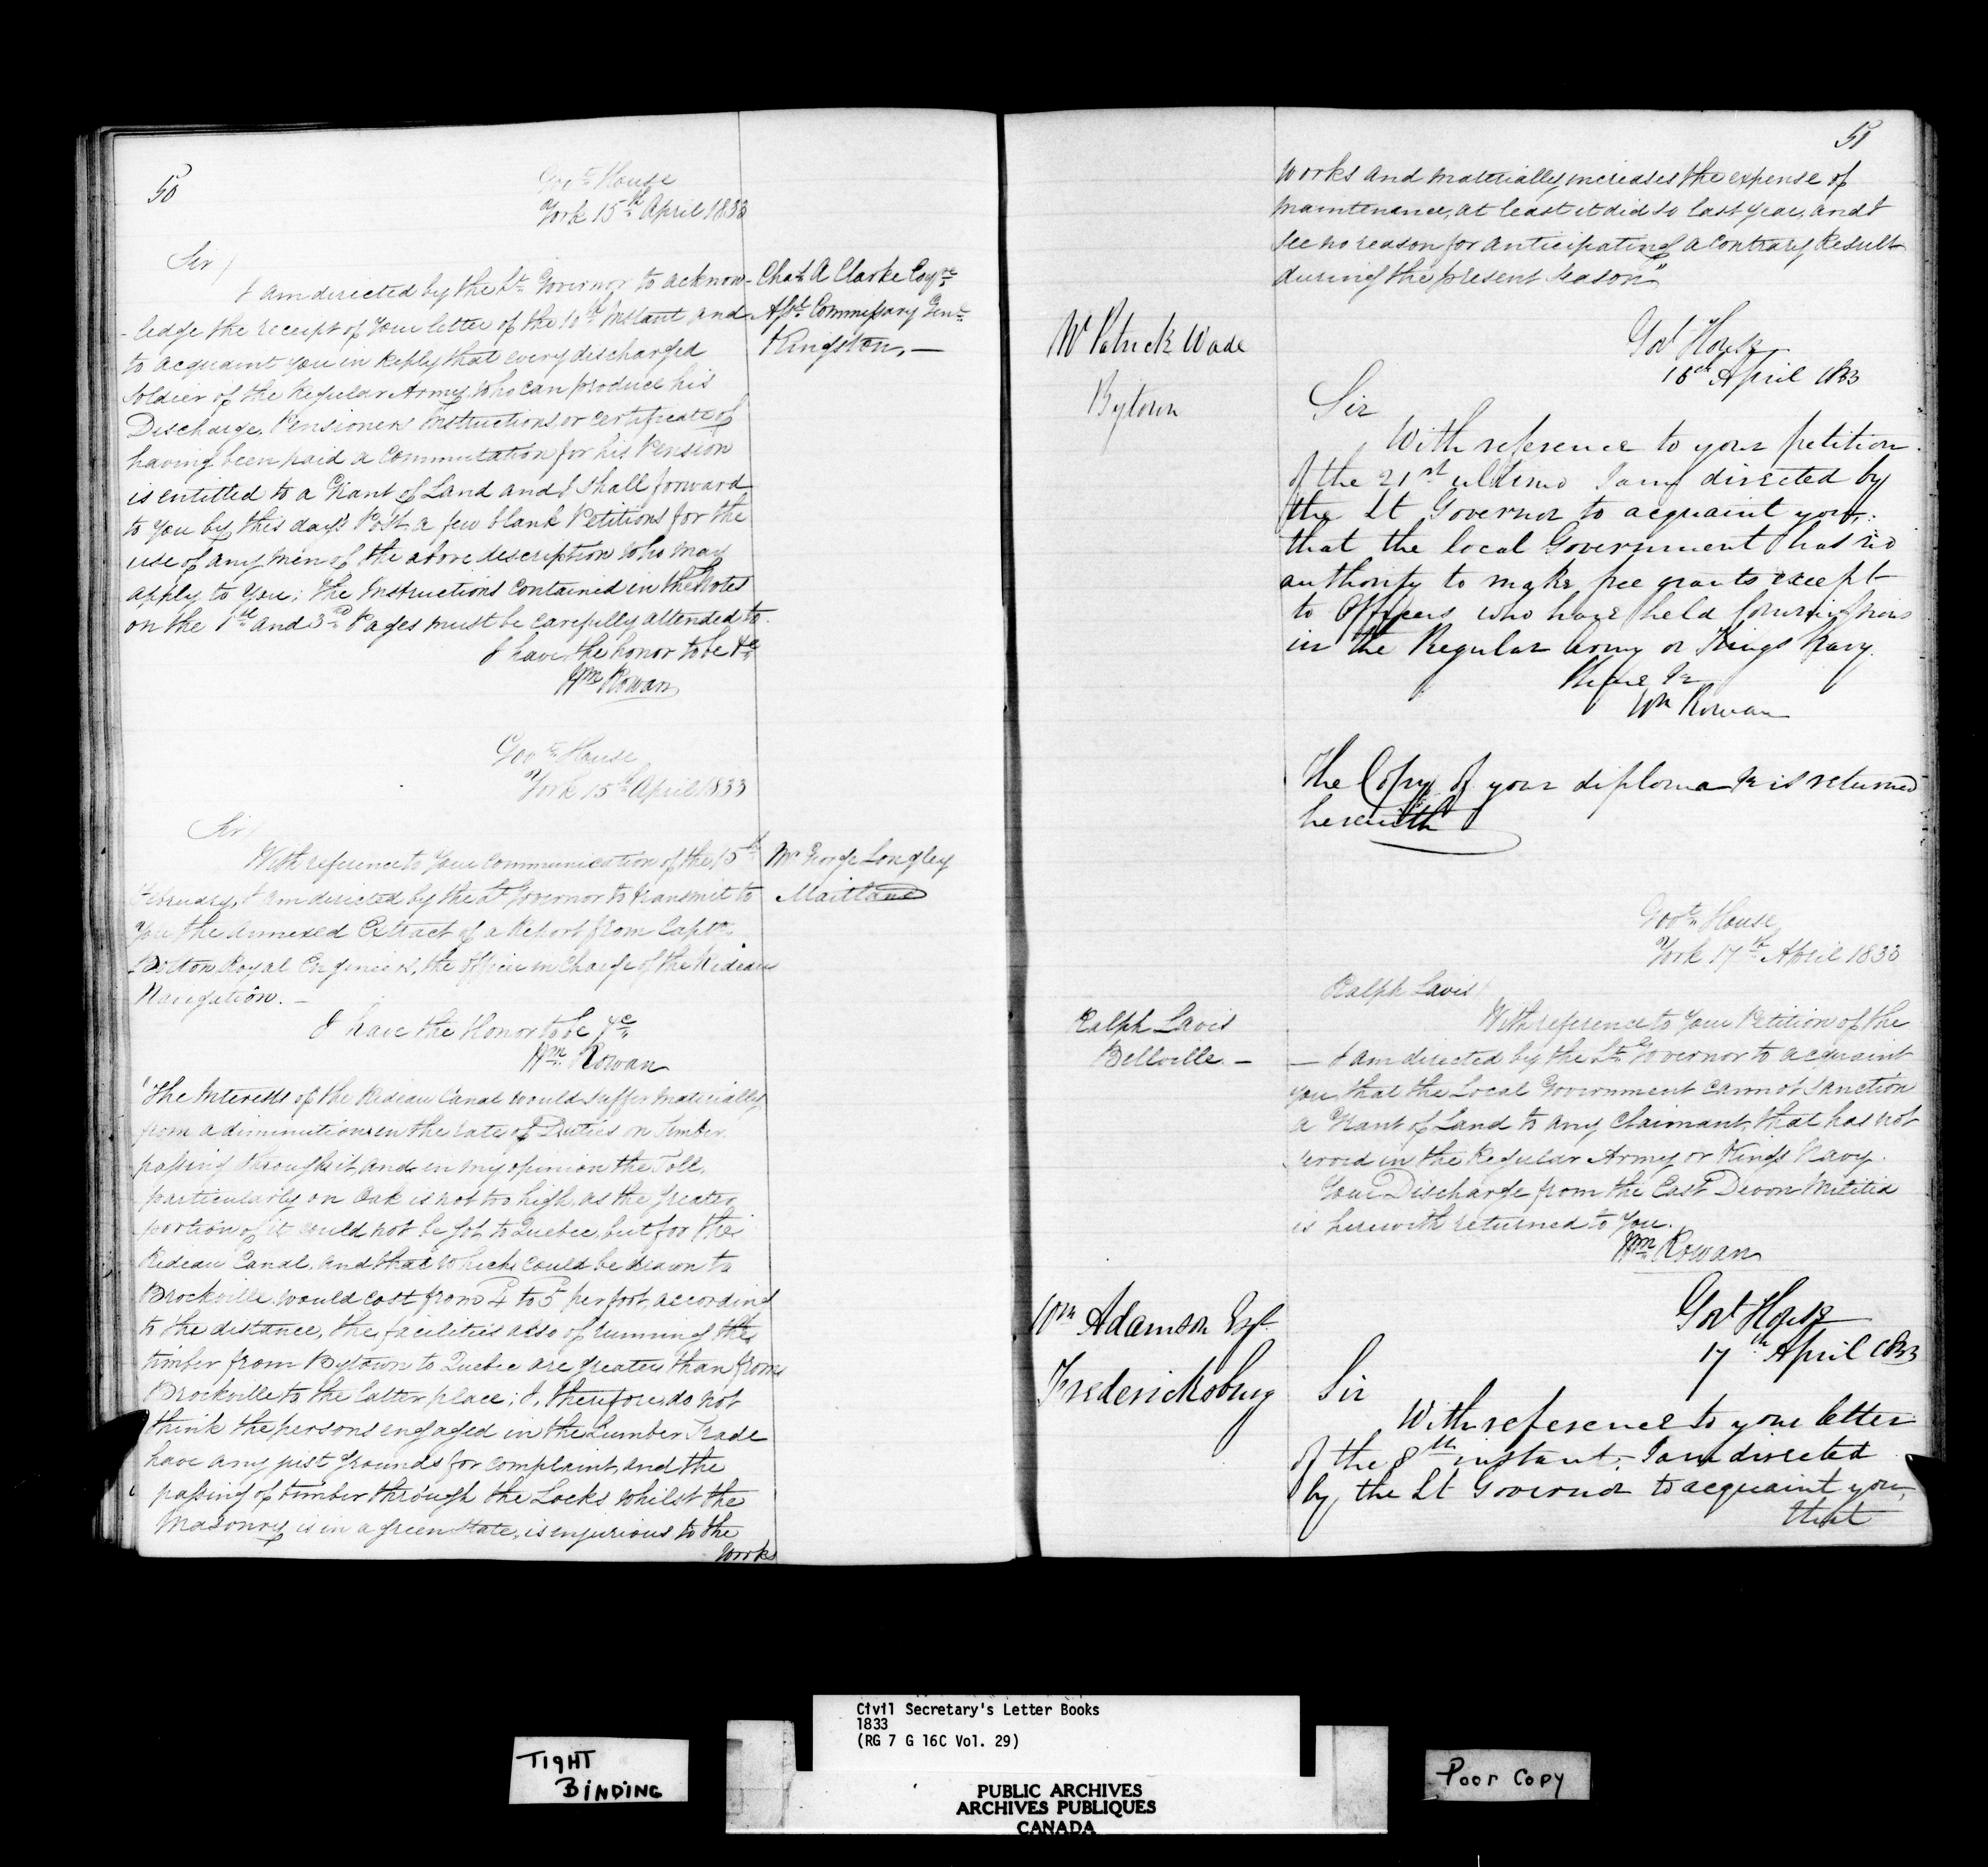 50
Govt. House
York 15th April 1833
Sir/
I am directed by the Lt. Governor to acknow-
-ledge the receipt of Your letter of the 10th Instant and
to acquaint you in Reply that every discharged
Soldier of the Regular Army who can produce his
Discharge, Pensioners Instructions or certificate of
having been paid a Commutation for his Pension
is entitled to a Grant of Land and I shall forward
to you by this days Post a few blank Petitions for the
use of any men of the above description who may
apply to You; the Instructions contained in the Notes
on the 1st and 3rd Pages must be carefully attended to.
I have the honor to be &c
Wm Rowan
Chas. A Clarke Esqre
Asst. Commissary Genl.
Kingston, —
Govt. House
York 15th April 1833
Sir/
With reference to Your Communication of the 15th
February, I am directed by the Lt Governor to transmit to
You the Annexed Extract of a Report from Captn.
Bolton Royal Engineers, the Officer in Charge of the Rideau
Navigation. —
I have the Honor to be &c
Wm. Rowan
Mr George Longley
Maitland
"The Interests of the Rideau Canal would suffer materially
from a diminution in the rate of Duties on Timber
passing through it, and in my opinion the Toll,
particularly on Oak is not too high, as the greater
portion of it could not be got to Quebec, but for the
Rideau Canal, and that which could be drawn to
Brockville would cost from 4d to 5d per foot, according
to the distance, the facilities also of running the
timber from Bytown to Quebec are greater than from
Brockville to the latter place; I, therefore do not
think the persons engaged in the Lumber Trade
have any just grounds for complaint, and the
passing of timber through the Locks whilst the
Masonry is in a green state, is injurious to the
Works
51
works and materially increases the expense of
maintenance, at least it did so last year, and I
see no reason for anticipating a contrary Result
during the present season"
Mr Patrick Wade
Bytown
Govt House
16th April 1833
Sir
With reference to your petition
of the 21st ultimo I am directed by
the Lt Governor to acquaint you,
that the local Government has no
authority to make free grants except
to Officers who have held Commissions
in the Regular Army or Kings Navy.
I have &c
Wm Rowan
The Copy of your diploma &c is returned
herewith
Govt. House
York 17th April 1833
Ralph Lavis
Bellville —
Ralph Lavis/
With reference to Your Petition of the
— I am directed by the Lt. Governor to acquaint
you, that the Local Government cannot sanction
a Grant of Land to any Claimant, that has not
served in the Regular Army or Kings Navy.
Your Discharge from the East Devon Militia
is herewith returned to You.
Wm. Rowan
Wm Adamson Esqr
Fredericksburg
Govt House
17th April 1833
Sir
With reference to your letter
of the 8th instant, I am directed
by the Lt Governor to acquaint you,
that
TIGHT
BINDING
Civil Secretary's Letter Books
1833
(RG 7 G 16C Vol. 29)
PUBLIC ARCHIVES
ARCHIVES PUBLIQUES
CANADA
Poor Copy